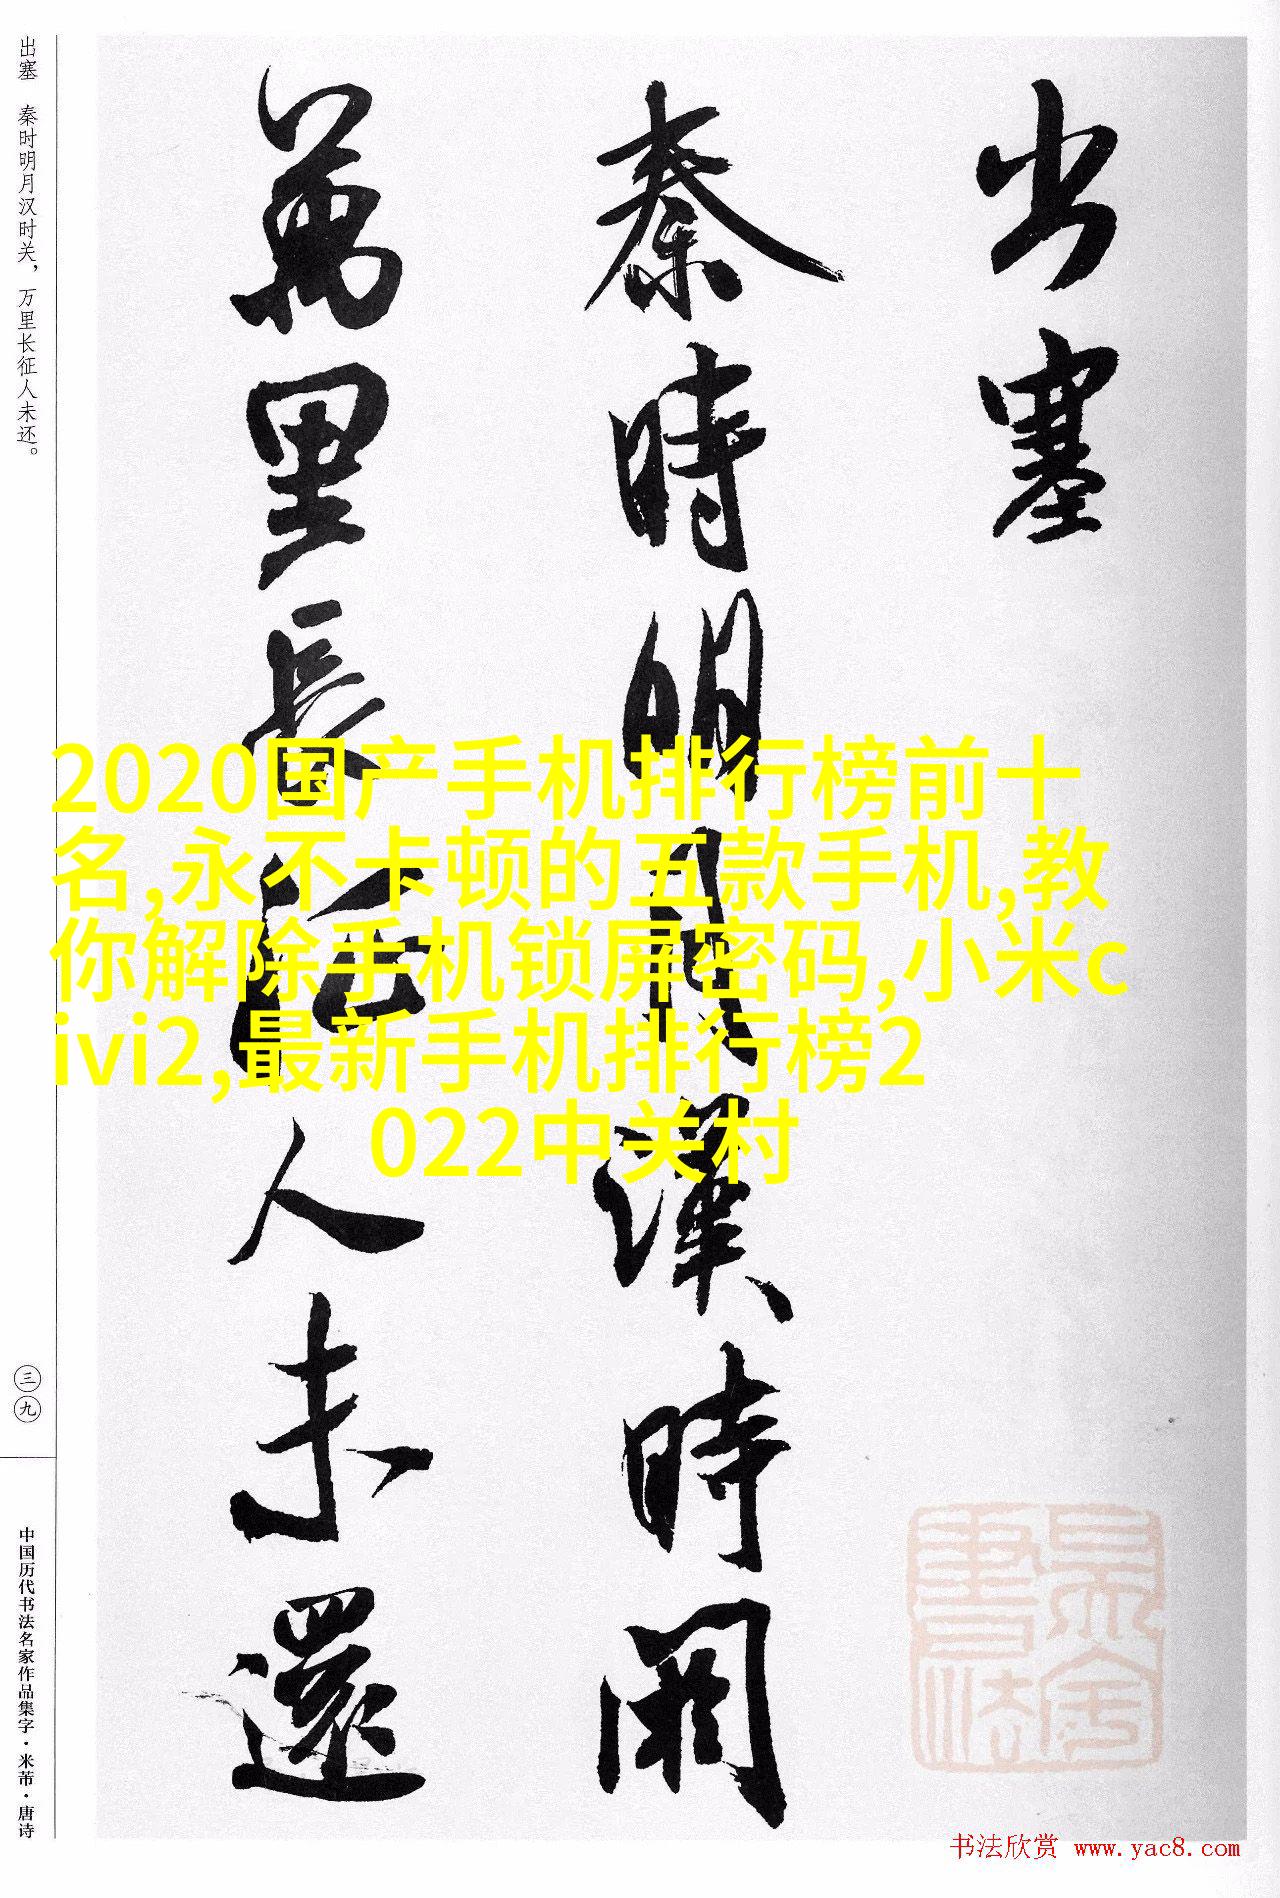 出塞
秦時明月漢時関
萬里長征人未還
出塞 秦时明月汉时关，万里长征人未还。
三九
中国历代书法名家作品集字·米芾·唐诗
2020国产手机排行榜前十
名,永不卡顿的五款手机,教
你解除手机锁屏密码,小米c
ivi2,最新手机排行榜2
022中关村
书法欣赏 www.yac8.com